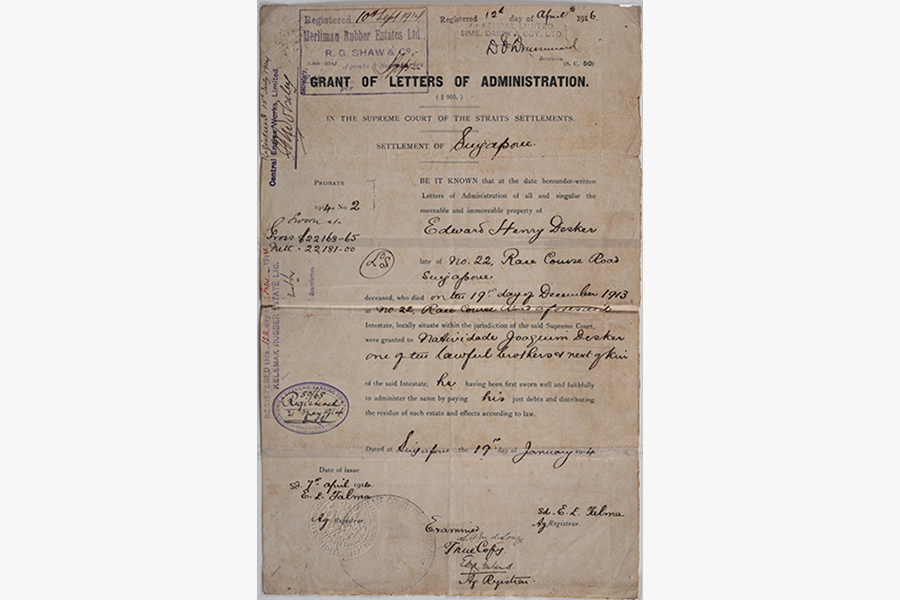 Registered 10th Sept 1914
Merlimau Rubber Estates Ltd.
R. G. SHAW & CO.
Agents &
Registered 12th day of April 1916
SIME, DARBY & COY., LTD.
D Drummond
(S. C. 60)
GRANT OF LETTERS OF ADMINISTRATION.
(§ 905.)
IN THE SUPREME COURT OF THE STRAITS SETTLEMENTS.
SETTLEMENT OF Singapore.
Registered 15th July 1914
Central Engine Works, Limited.
PROBATE
1914 No. 2
Sworn at
Gross $22168-65
Nett - 22,181-00
BE IT KNOWN that at the date hereunder-written
Letters of Administration of all and singular the
moveable and immoveable property of
Edward Henry Desker
LS
late of No. 22, Race Course Road
Singapore
deceased, who died on the 19th day of December 1913
at No. 22, Race Course Road aforesaid
Intestate, locally situate within the jurisdiction of the said Supreme Court,
were granted to Natividade Joaquim Desker
one of the lawful brothers & next of kin
of the said Intestate, he having been first sworn well and faithfully
to administer the same by paying his just debts and distributing
the residue of such estate and effects according to law.
REGISTERED this 12th day of
KELEMAK RUBBER ESTATE LTD.
Secretaries.
55/65
Registered
21 May 1914
Dated at Singapore the 19th day of January 1914
Date of issue
sd. 7th April 1914
E. L. Talma
Ag Registrar.
sd. E. L. Talma
Ag Registrar.
Examined
True Copy
Ag Registrar.